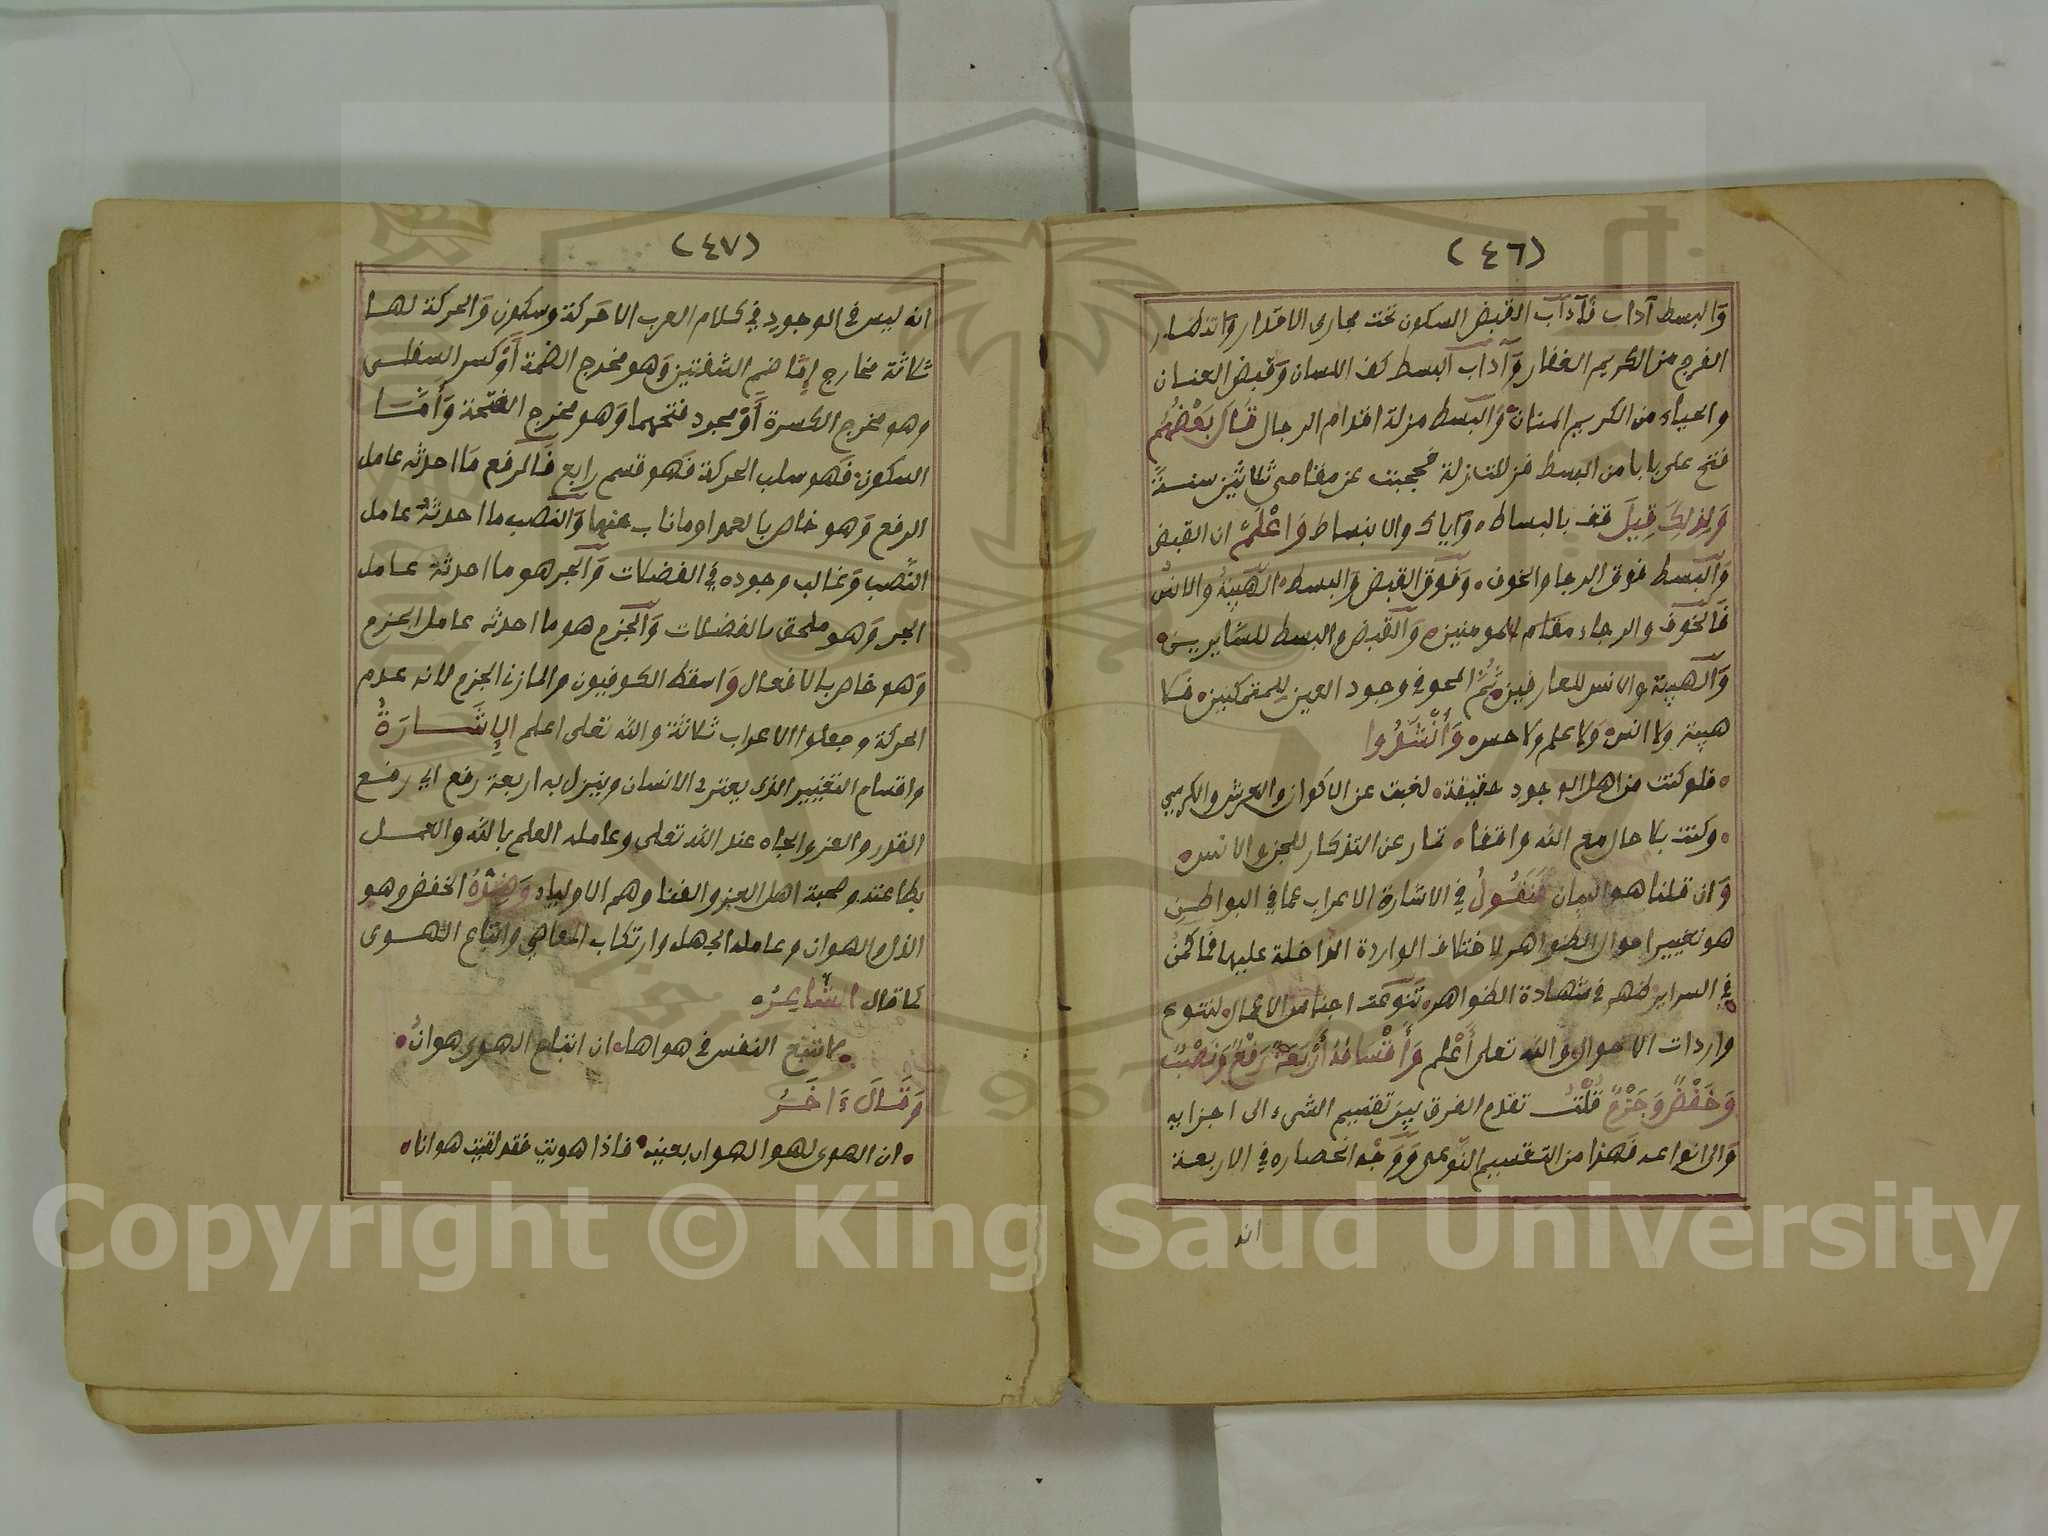 (٤٦)
والبسط آداب فآداب القبض السكون تحت مجارى الاقدار وانتظار
الفرج من الكريم الغفار وآداب البسط كف اللسان وقبض العنان
والحياء من الكريم المنان والبسط مزلة اقدام الرجال قال بَعْضُهُم
فتح على بابا من البسط فزللت زلة فحجبت عن مقامى ثلاثين سنة
وَلِذلِكَ قِيلَ قف بالبساط واياك والانبساط وَاعْلَمْ ان القبض
والبسط فوق الرجا والخوف وفوق القبض والبسط الهيبة والانس
فالخوف والرجاء مقام للمومنين والقبض والبسط للسايرين
والهيبة والانس للعارفين ثم المحو في وجود العين للمتمكنين فلا
هيبة ولا انس ولا علم ولا حس وَأَنْشَدُوا
فلو كنت من اهل الوجود حقيقة لغبت عن الاكوان والعرش والكرسي
وكنت بلا حال مع الله واقفا تصان عن التذكار للجن والانس
وان قلنا هو البيان فَنَقُولُ في الاشارة الاعراب عما في البواطن
هو تغيير احوال الظواهر لاختلاف الواردة الداخلة عليها فما كمن
في السراير ظهر في شهادة الظواهر تنوعت اجناس الاعمال لتنوع
واردات الاحوال والله تعلى أَعْلم وَأَقْسَامُهُ أَرْبَعَةٌ رَفْعٌ وَنَصْبٌ
وَخَفْضٌ وَجَزْمٌ قُلْتُ تقدم الفرق بين تقسيم الشيء الى اجزايه
والى انواعه فهذا من التقسيم النوعى ووجه انحصاره في الاربعة
انه
(٤٧)
انه ليس في الوجود في كلام العرب الا حركة وسكون والحركة لها
ثلاثة مخارج إمّا ضم الشفتين وهو مخرج الضمة أو كسر السفلى
وهو مخرج الكسرة أو مجرد فتحهما وهو مخرج الفتحة وأمّا
السكون فهو سلب الحركة فهو قسم رابع فالرفع ما احدثه عامل
الرفع وهو خاص بالعمد او ما ناب عنها والنصب ما احدثه عامل
النصب وغالب وجوده في الفضلات والجر هو ما احدثه عامل
الجر وهو ملحق بالفضلات والجزم هو ما احدثه عامل الجزم
وهو خاص بالافعال واسقط الكوفيون والمازنى الجزم لانه عدم
الحركة وجعلوا الاعراب ثلاثة والله تعلى اعلم الإِشَارَةُ
واقسام التغيير الذى يعترى الانسان وينزل به اربعة رفع اى رفع
القدر والعز والجاه عند الله تعلى وعامله العلم بالله والعمل
بطاعته وصحبة اهل العز والغنا وهم الاولياء وَضِدُّهُ الخفض وهو
الذل والهوان وعامله الجهل وارتكاب المعاصى واتباع الهوى
كما قال الشَّاعِرُ
لا تتبع النفس في هواها ان اتباع الهوى هوانُ
وَقَالَ ءَاخَرُ
ان الهوى لهو الهوان بعينه فاذا هويت فقد لقيت هوانا
Copyright © King Saud University
1957